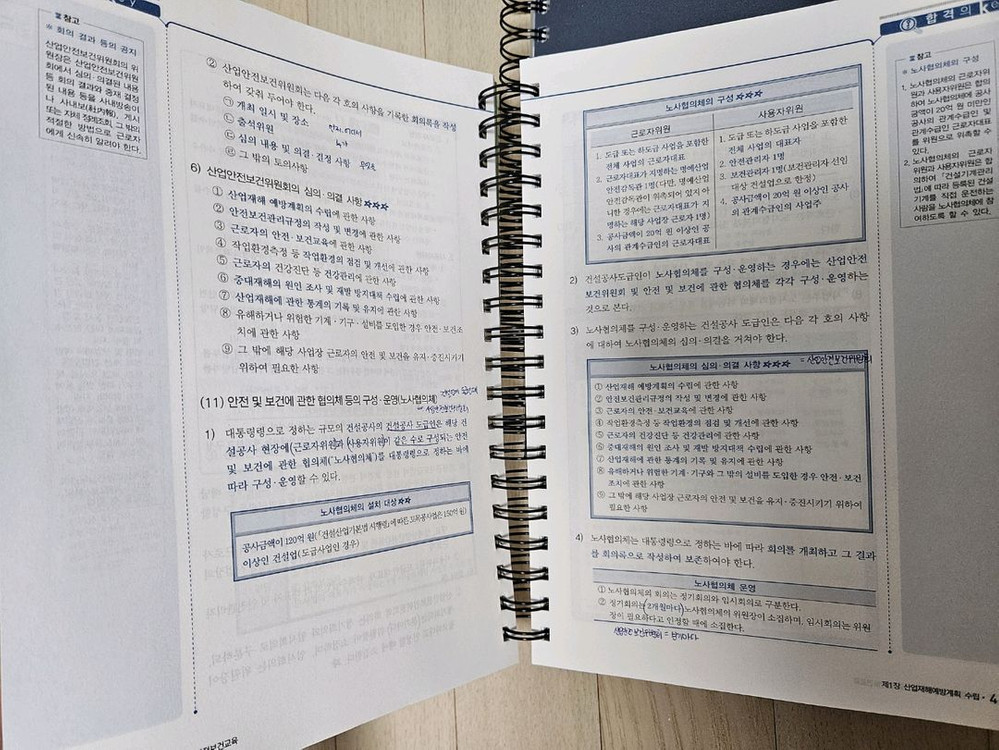 참고
※ 회의 결과 등의 공지
산업안전보건위원회의 위
원장은 산업안전보건위원
회에서 심의·의결된 내용
등 회의 결과와 중재 결정
된 내용 등을 사내방송이
나 사내보(社內報), 게시
또는 자체 정례조회, 그 밖의
적절한 방법으로 근로자
에게 신속히 알려야 한다.
② 산업안전보건위원회는 다음 각 호의 사항을 기록한 회의록을 작성
하여 갖춰 두어야 한다.
㉠ 개최 일시 및 장소
㉡ 출석위원
㉢ 심의 내용 및 의결·결정 사항
㉣ 그 밖의 토의사항
6) 산업안전보건위원회의 심의·의결 사항 ★★★
① 산업재해 예방계획의 수립에 관한 사항
② 안전보건관리규정의 작성 및 변경에 관한 사항
③ 근로자의 안전·보건교육에 관한 사항
④ 작업환경측정 등 작업환경의 점검 및 개선에 관한 사항
⑤ 근로자의 건강진단 등 건강관리에 관한 사항
⑥ 중대재해의 원인 조사 및 재발 방지대책 수립에 관한 사항
⑦ 산업재해에 관한 통계의 기록 및 유지에 관한 사항
⑧ 유해하거나 위험한 기계·기구·설비를 도입한 경우 안전·보건조
치에 관한 사항
⑨ 그 밖에 해당 사업장 근로자의 안전 및 보건을 유지·증진시키기
위하여 필요한 사항
(11) 안전 및 보건에 관한 협의체 등의 구성·운영(노사협의체)
1) 대통령령으로 정하는 규모의 건설공사의 건설공사 도급인은 해당 건
설공사 현장에 (근로자위원)과 (사용자위원)이 같은 수로 구성되는 안전
및 보건에 관한 협의체("노사협의체")를 대통령령으로 정하는 바에
따라 구성·운영할 수 있다.
노사협의체의 설치 대상 ★★
공사금액이 120억 원(「건설산업기본법 시행령」에 따른 토목공사업은 150억 원)
이상인 건설업(도급사업인 경우)
안전보건교육
합격의 key
참고
※ 노사협의체의 구성
1. 노사협의체의 근로자위
원과 사용자위원은 합의
하여 노사협의체에 공사
금액이 20억 원 미만인
공사의 관계수급인 및
관계수급인 근로자대표
를 위원으로 위촉할 수
있다.
2. 노사협의체의 근로자
위원과 사용자위원은 합
의하여 「건설기계관리
법」에 따라 등록된 건설
기계를 직접 운전하는
사람을 노사협의체에 참
여하도록 할 수 있다.
노사협의체의 구성 ★★★
근로자위원
1. 도급 또는 하도급 사업을 포함한
전체 사업의 근로자대표
2. 근로자대표가 지명하는 명예산업
안전감독관 1명(다만, 명예산업
안전감독관이 위촉되어 있지 아
니한 경우에는 근로자대표가 지
명하는 해당 사업장 근로자 1명)
3. 공사금액이 20억 원 이상인 공
사의 관계수급인의 근로자대표
사용자위원
1. 도급 또는 하도급 사업을 포함한
전체 사업의 대표자
2. 안전관리자 1명
3. 보건관리자 1명(보건관리자 선임
대상 건설업으로 한정)
4. 공사금액이 20억 원 이상인 공사
의 관계수급인의 사업주
2) 건설공사도급인이 노사협의체를 구성·운영하는 경우에는 산업안전
보건위원회 및 안전 및 보건에 관한 협의체를 각각 구성·운영하는
것으로 본다.
3) 노사협의체를 구성·운영하는 건설공사 도급인은 다음 각 호의 사항
에 대하여 노사협의체의 심의·의결을 거쳐야 한다.
노사협의체의 심의·의결 사항 ★★★ = 산업안전보건위원회
① 산업재해 예방계획의 수립에 관한 사항
② 안전보건관리규정의 작성 및 변경에 관한 사항
③ 근로자의 안전·보건교육에 관한 사항
④ 작업환경측정 등 작업환경의 점검 및 개선에 관한 사항
⑤ 근로자의 건강진단 등 건강관리에 관한 사항
⑥ 중대재해의 원인 조사 및 재발 방지대책 수립에 관한 사항
⑦ 산업재해에 관한 통계의 기록 및 유지에 관한 사항
⑧ 유해하거나 위험한 기계·기구와 그 밖의 설비를 도입한 경우 안전·보건
조치에 관한 사항
⑨ 그 밖에 해당 사업장 근로자의 안전 및 보건을 유지·증진시키기 위하여
필요한 사항
4) 노사협의체는 대통령령으로 정하는 바에 따라 회의를 개최하고 그 결과
를 회의록으로 작성하여 보존하여야 한다.
노사협의체 운영
① 노사협의체의 회의는 정기회의와 임시회의로 구분한다.
② 정기회의는 (2개월마다) 노사협의체의 위원장이 소집하며, 임시회의는 위원
장이 필요하다고 인정할 때에 소집한다.
산업안전보건위원회 = 분기마다
제1장 산업재해예방계획 수립 · 4